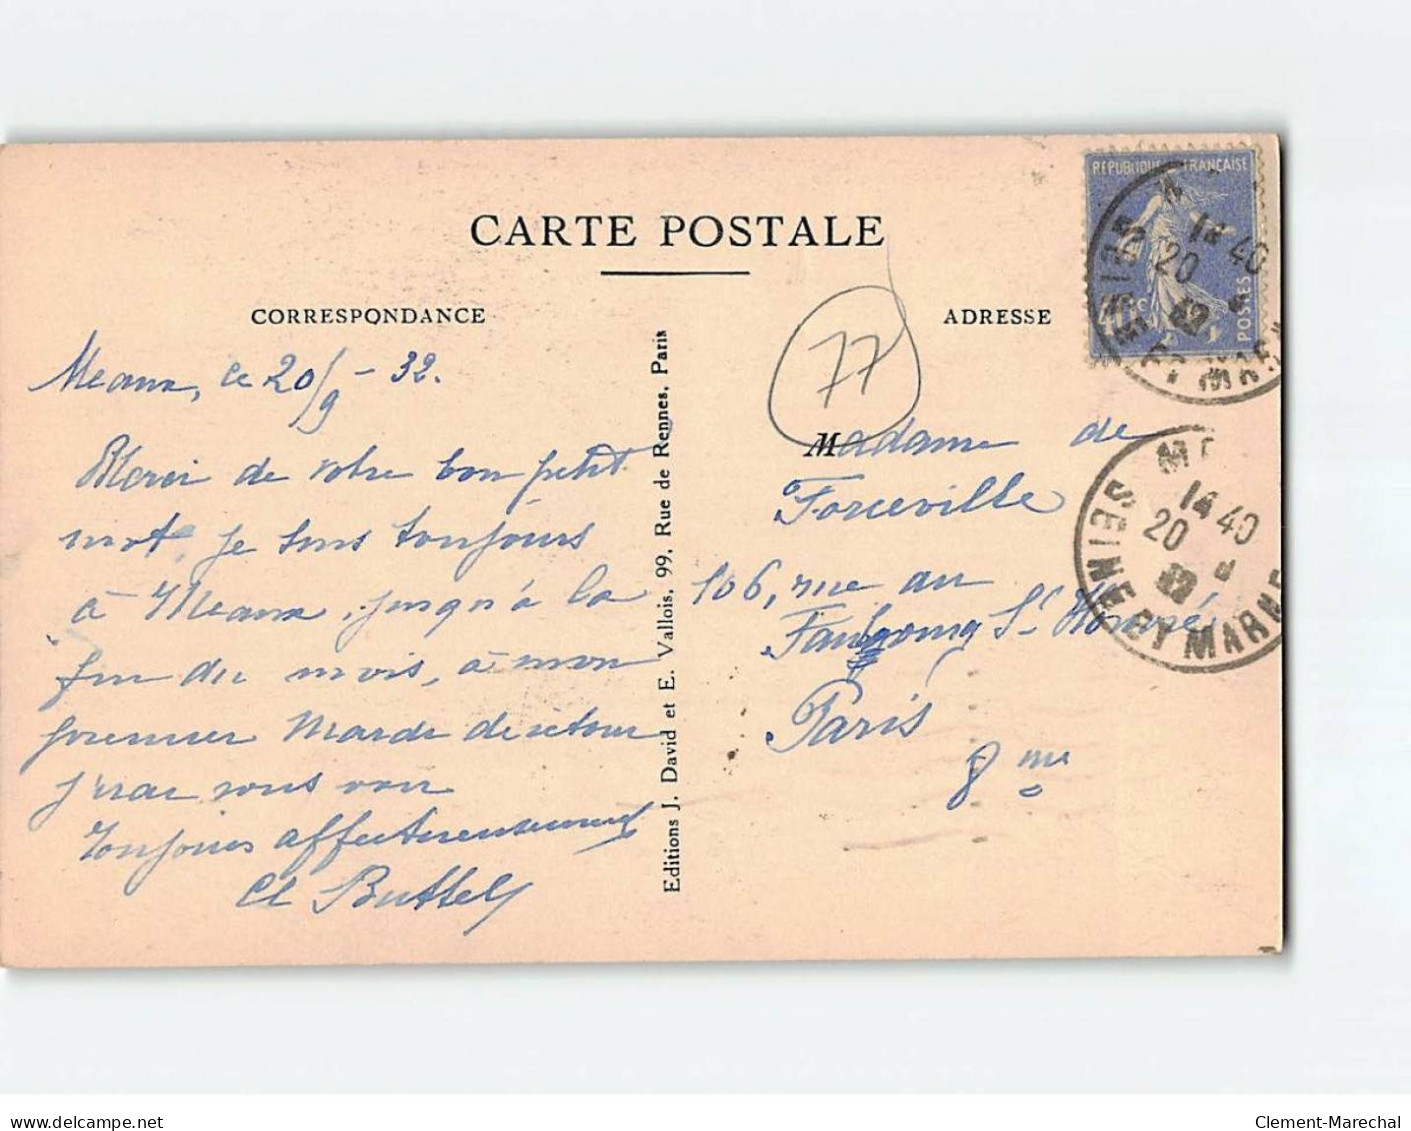 CARTE POSTALE
CORRESPONDANCE
Meaux, ce 20/9 - 32.
Merci de votre bon petit
mot, je suis toujours
à Meaux, jusqu'à la
fin du mois, à mon
premier Mardi de retour
j'irai vous voir
Toujours affectueusement
Cl Buttel
Editions J. David et E. Vallois, 99, Rue de Rennes, Paris
77
ADRESSE
Madame de
Forceville
106, rue au
Faubourg St Honoré,
Paris
8me
REPUBLIQUE FRANÇAISE
40c
POSTES
14 40
20
SEINE ET MAR
ME
14 40
20
SEINE ET MARNE
www.delcampe.net
Clement-Marechal